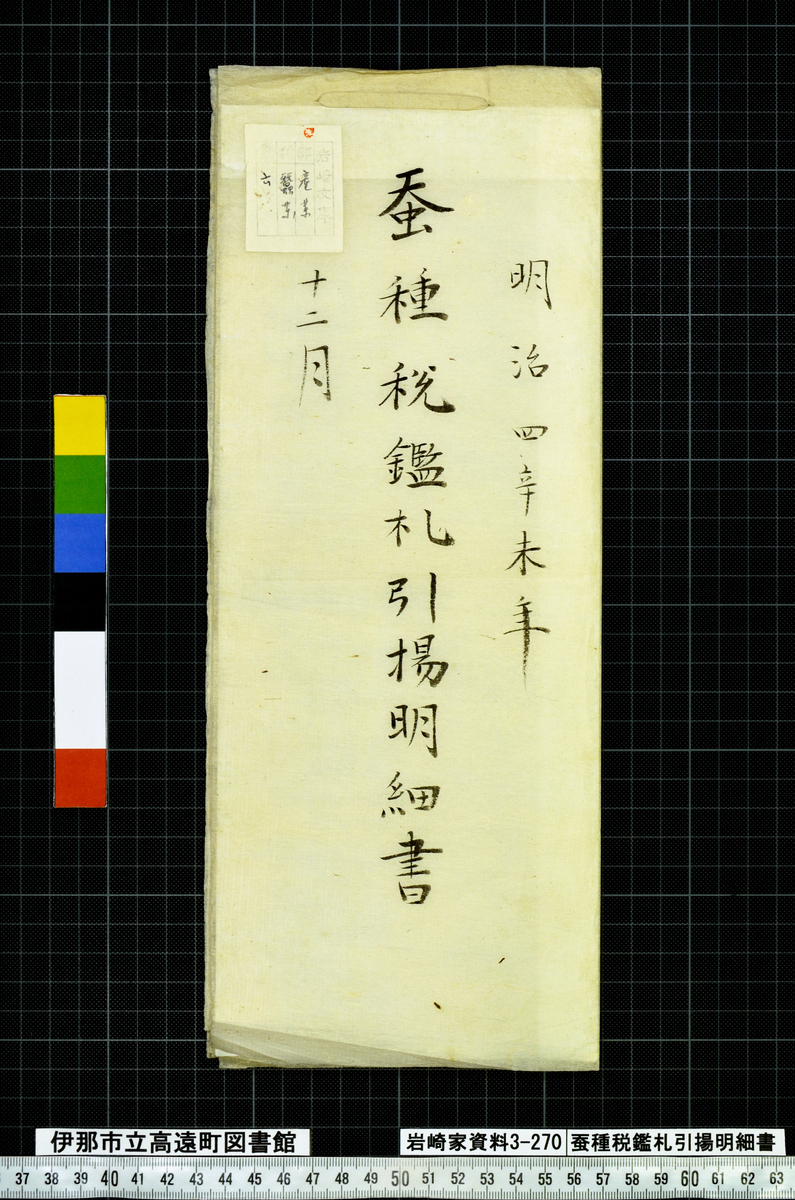 明治四辛未年
蚕種税鑑札引揚明細書
十二月
産業
蠶業
伊那市立高遠町図書館
岩崎家資料3-270
蚕種税鑑札引揚明細書
37 38 39 40 41 42 43 44 45 46 47 48 49 50 51 52 53 54 55 56 57 58 59 60 61 62 63